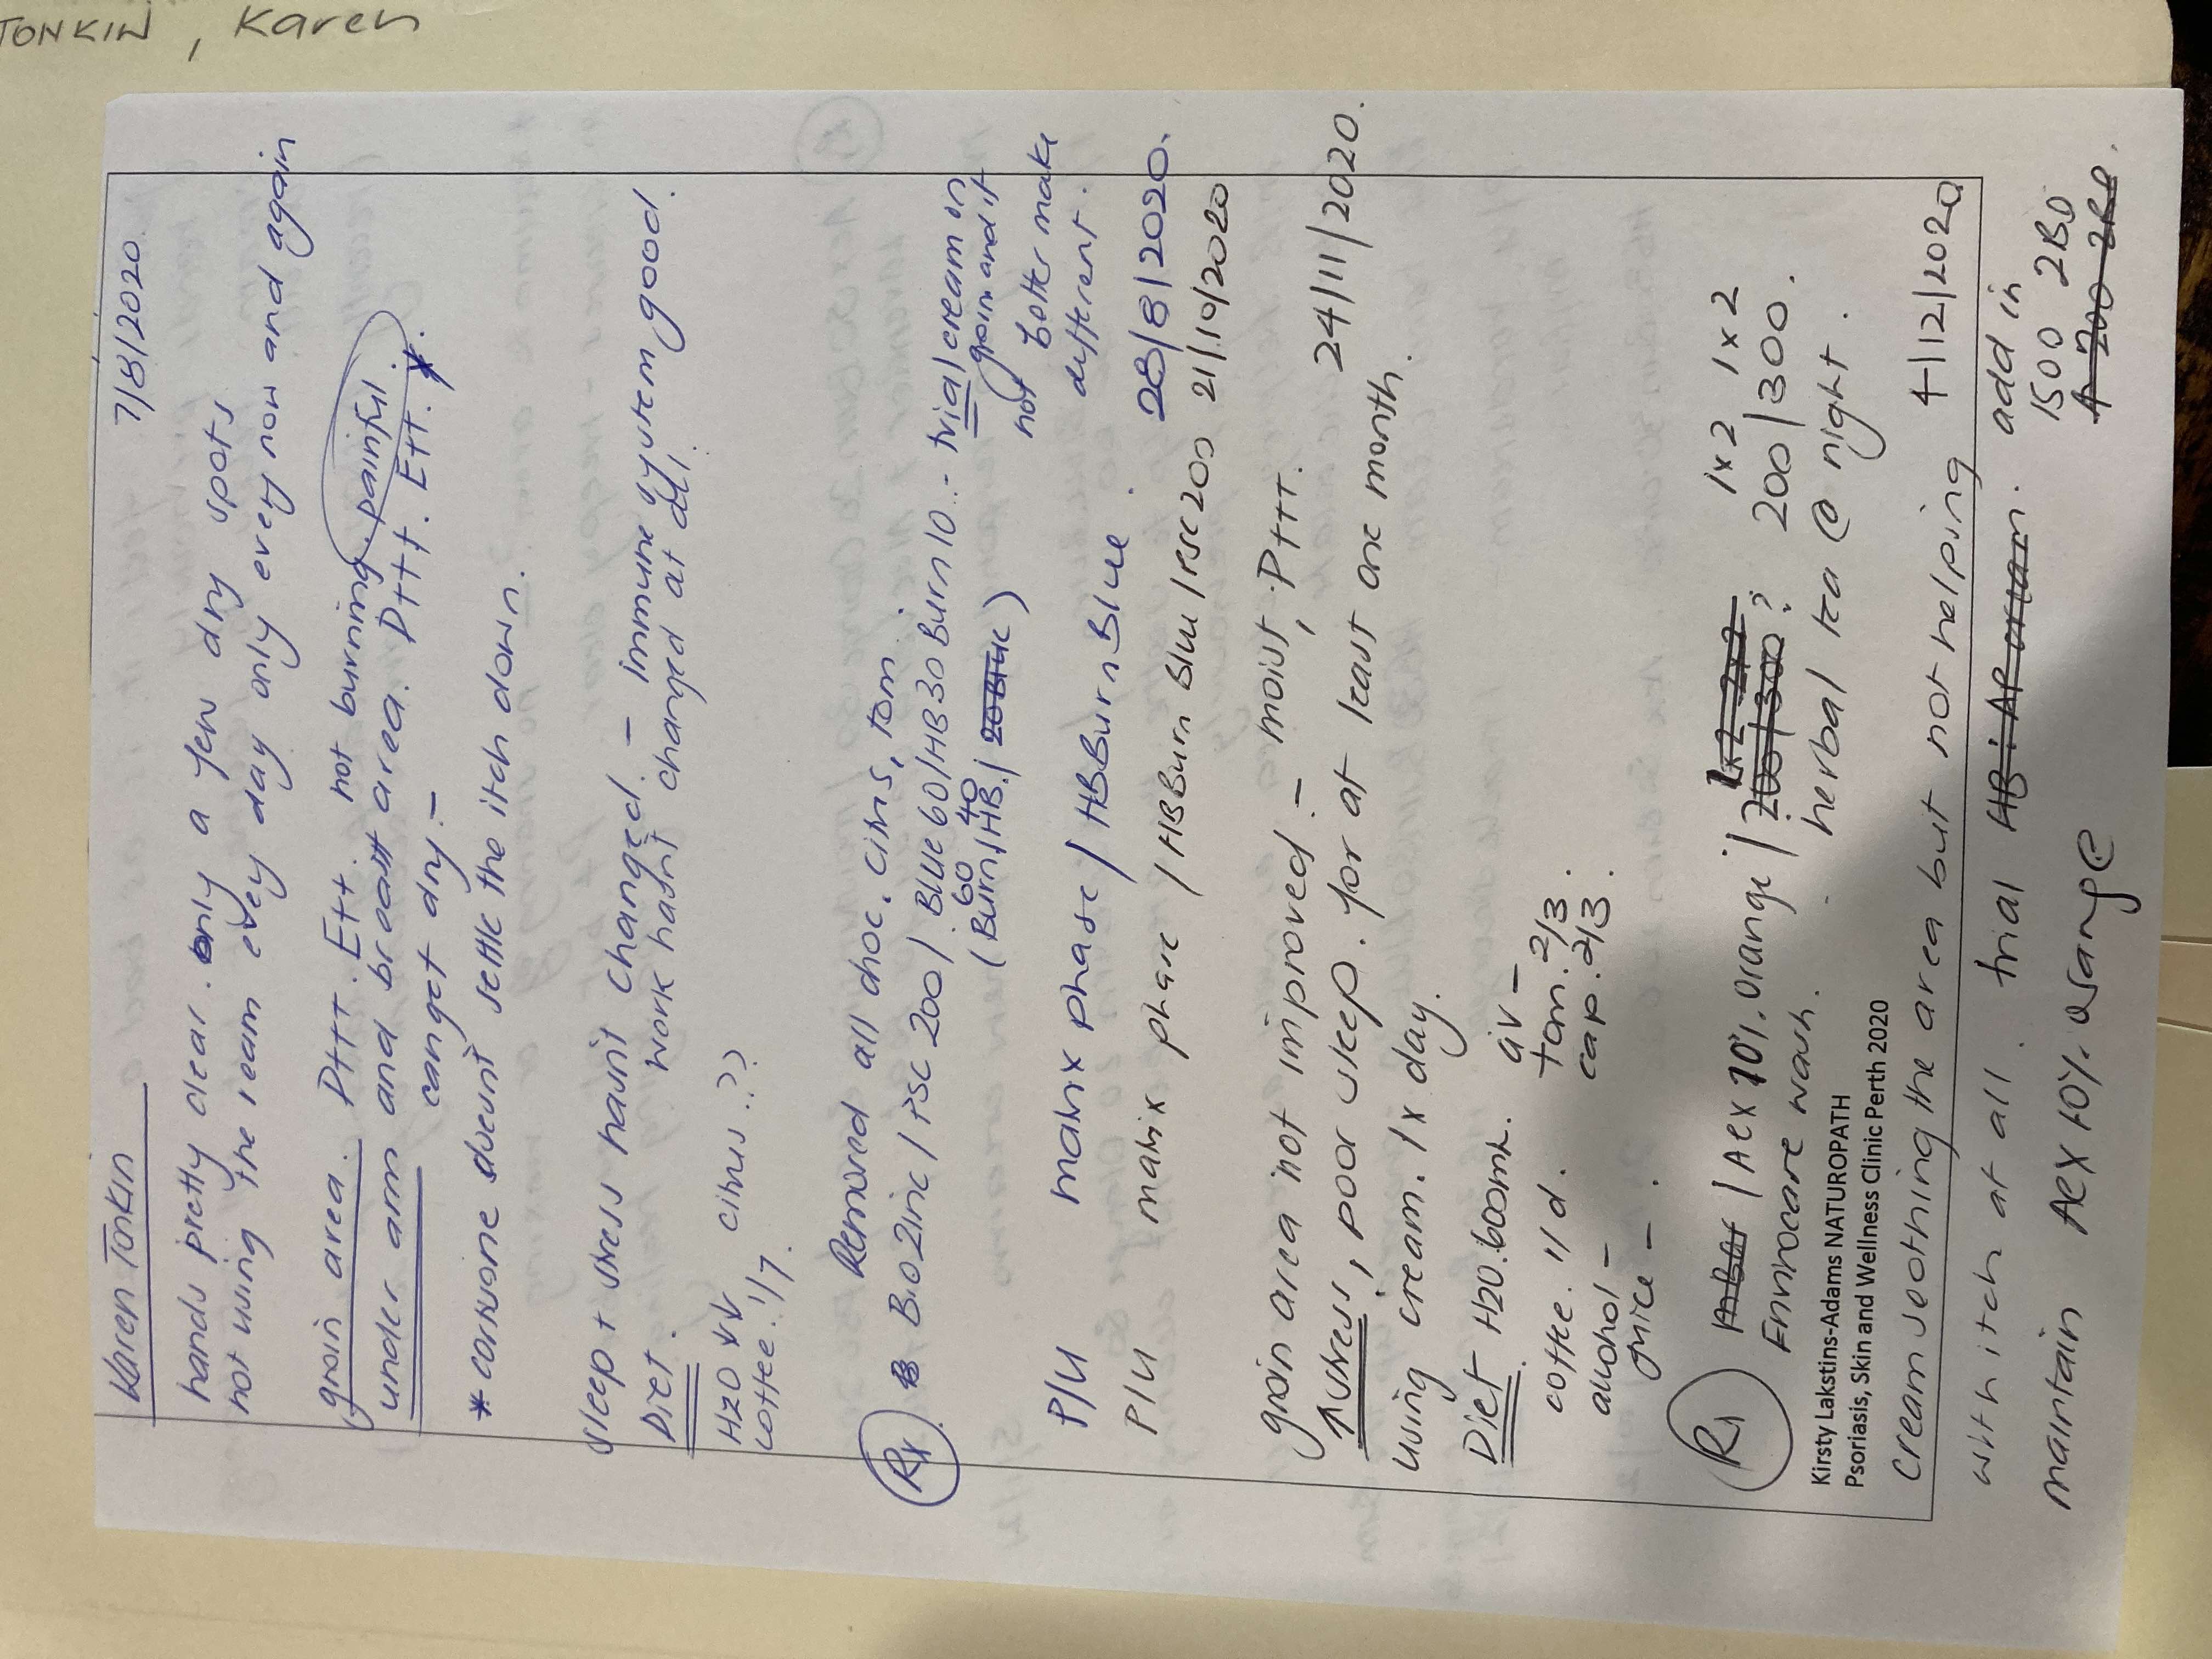 TONKIN, Karen
Karen Tonkin 7/8/2020
hands pretty clear. only a few dry spots
not using the ream every day only every now and again
groin area. P+++. E++. not burning. painful.
under arm and breast area. P+++. E++. *
cannot dry. -
* cortisone doesnt settle the itch down.
sleep + stress hasn't changed. - immune system good.
work hadnt changed at all.
Diet.
H20 ↓↓ citrus..??
coffee. 1/7.
Removed all choc, citrus, tom.
Rx B.O. Zinc / PSC 200 /. Blue 60/HB 30 Burn 10. - trial cream on
groin and if
not better make
different.
(Burn 60/HB. 40 / )
P/U matrix phase / HBBurnBlue. 28/8/2020.
P/U matrix phase / HBBurn Blue / PSC 200 21/10/2020
groin area not improved. - moist, P+++. 24/11/2020.
↑ stress, poor sleep. for at least one month.
using cream. 1x day.
Diet H20. 600mL. av -
coffee. 1/d. tom. 2/3.
alcohol - cap. 2/3.
juice - .
1x2 1x2
Rx / Aex 10%. orange / 200/300 ? 200/300.
Envirocare wash. herbal tea @ night.
Kirsty Lakstins-Adams NATUROPATH
Psoriasis, Skin and Wellness Clinic Perth 2020
cream soothing the area but not helping 4/12/2020
with itch at all. trial HB: AP cream. add in
1500 2BD
maintain Aex 10%. orange